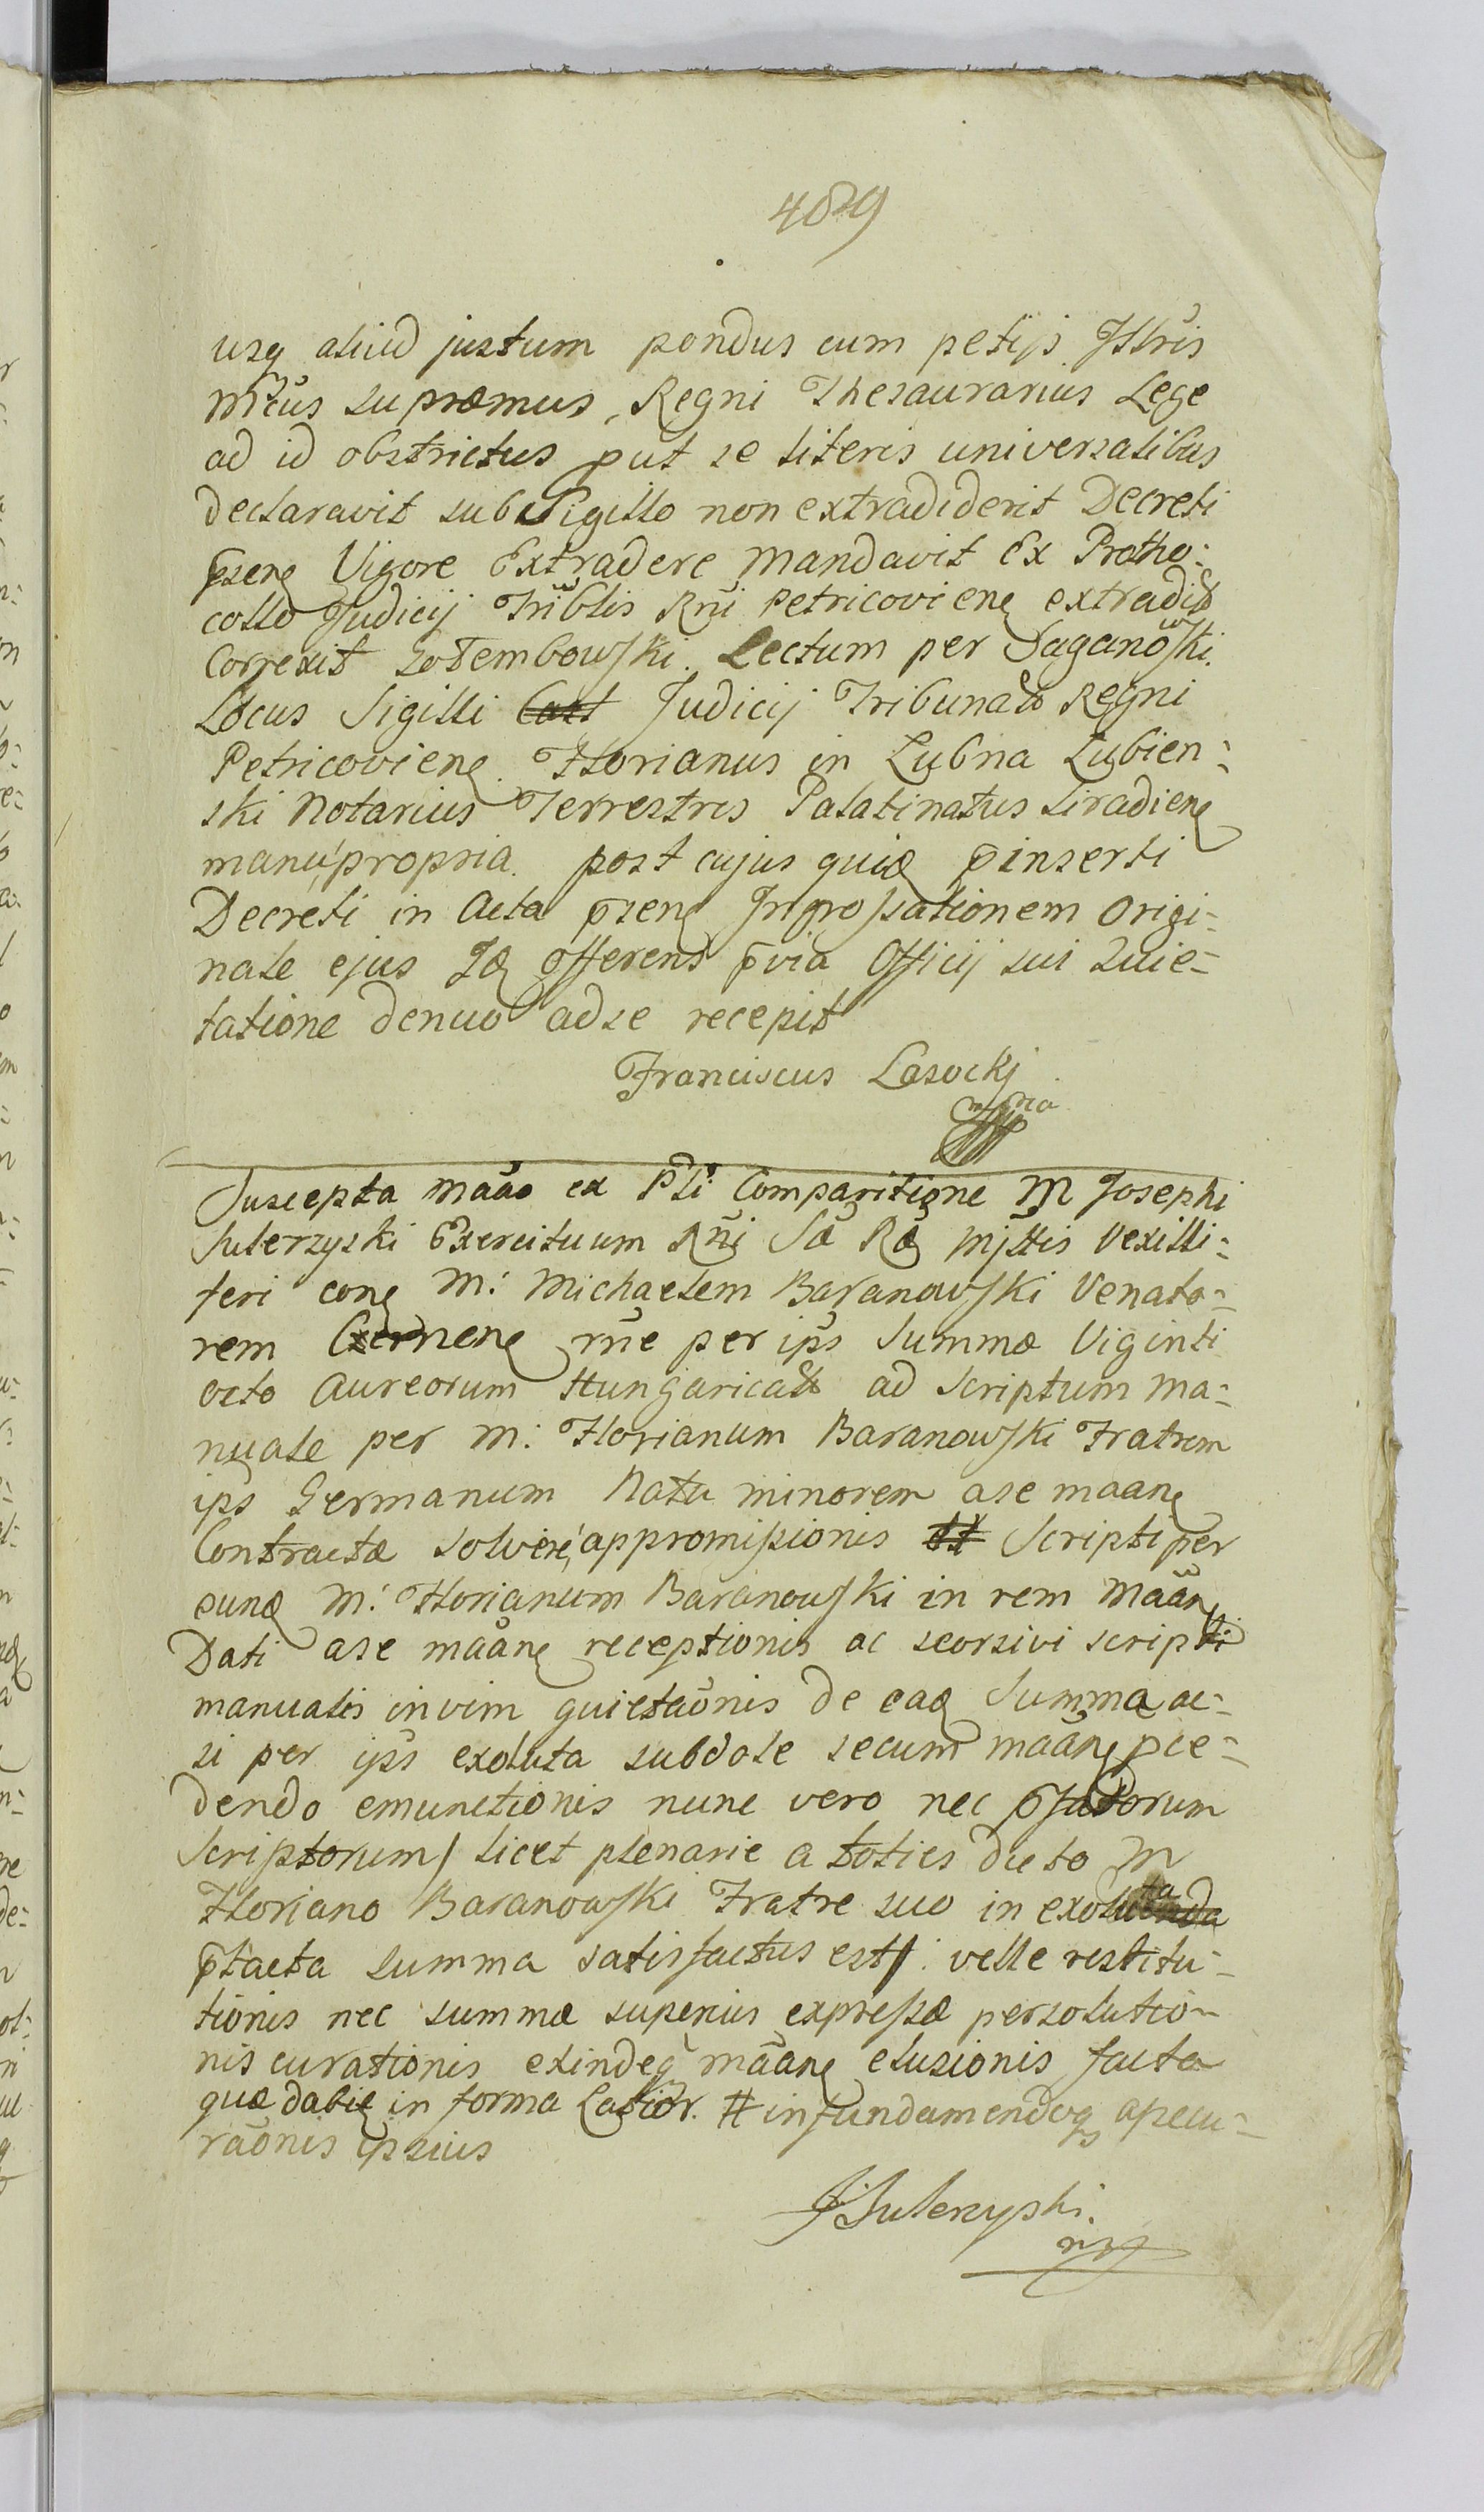 489
usq aliud justum pondus cum petijs Illris
Mcus supræmus, Regni Thesaurarius Lege
ad id obstrictus put se literis universalibus
declaravit sub Sigillo non extradiderit Decreti
pseng Vigore Extradere mandavit Ex Protho:
collo Judicij Triblis Rni Petricovieng extradit
Correxit Gołembowski. Lectum per Saganowski.
Locus Sigilli Judicij Tribunalis Regni
Petricovieng. Florianus in Lubna Lubien:
ski Notarius Terrestris Palatinatus Siradieng
manu propria. post cujus quiq pinserti
Decreti in Acta pseng Ingrossationem origi-
nale ejus Iq offerens pvia Officij sui Quie-
tatione denuo ad se recepit
Franciscus Lasockj
mpria
Suscepta maao ex Pli Comparitione M Josephi
Sulerzyski Exercituum Rni Sã Rã Mjttis Vexilli:
feri cong M: Michaelem Baranowski Venato-
rem rne per ips Summæ Viginti
octo Aureorum Hungaricalis ad Scriptum ma-
nuale per M: Florianum Baranowski Fratrem
ips Germanum Natu minorem a se maang
Contractæ solvere, appromissionis Scripti per
eunq M: Florianum Baranowski in rem Maang
Dati a se maang receptionis ac seorsivi scripti
manualis in vim quietaonis de eaq Summa ac-
si per ips exoluta subdole secum maang pce-
dendo emunctionis nunc vero nec pfatorum
Scriptorum / licet plenarie a toties dicto M
Floriano Baranowski Fratre suo in exoluta
ptacta summa satisfactus est / velle restitu-
tionis nec summæ superius expressæ persolutio-
nis curationis exindeq maang elusionis facta
quæ dabit in forma Latior. # in fundamendoq apecu-
raonis ipsius
J Sulerzyski.
mp